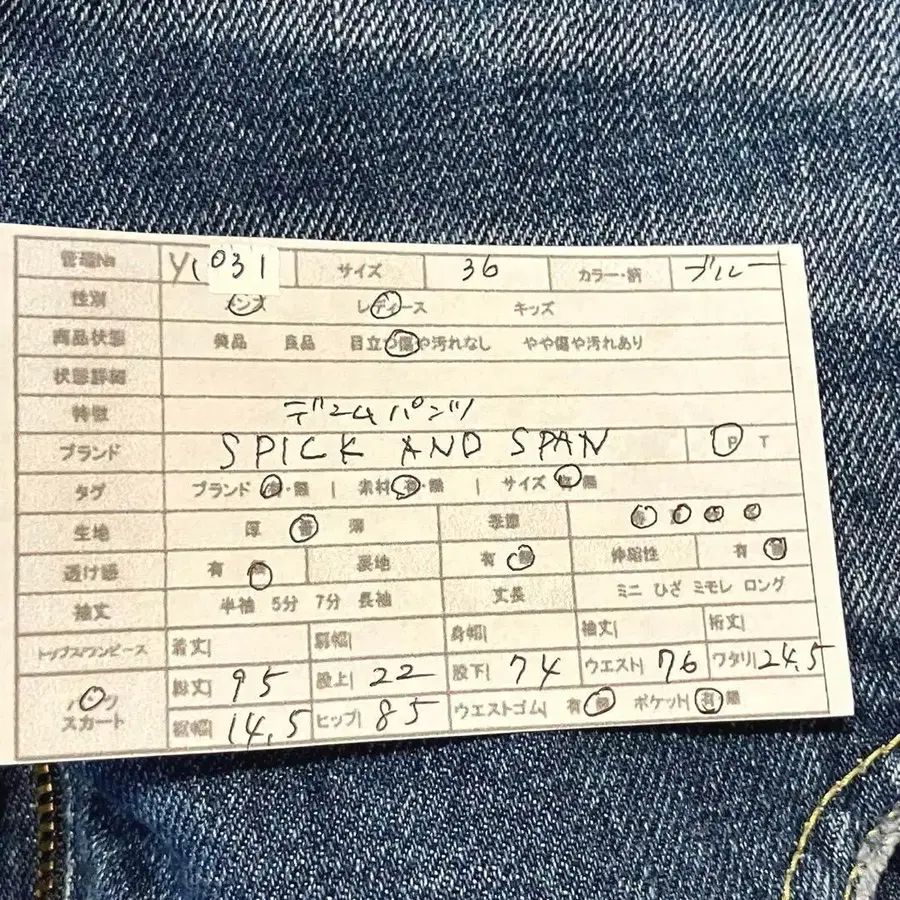 管理No Y1031 サイズ 36 カラー・柄 ブルー
性別 メンズ レディース キッズ
商品状態 美品 良品 目立つ傷や汚れなし やや傷や汚れあり
状態詳細
特徴 デニムパンツ
ブランド SPICK AND SPAN P T
タグ ブランド 有・無 | 素材 有・無 | サイズ 有・無
生地 厚 普 薄 季節
透け感 有 無 裏地 有 無 伸縮性 有 無
袖丈 半袖 5分 7分 長袖 丈長 ミニ ひざ ミモレ ロング
トップス/ワンピース 着丈| 肩幅| 身幅| 袖丈| 裄丈|
パンツ スカート 総丈| 95 股上| 22 股下| 74 ウエスト| 76 ワタリ| 24.5
裾幅| 14.5 ヒップ| 85 ウエストゴム| 有 無 ポケット| 有 無